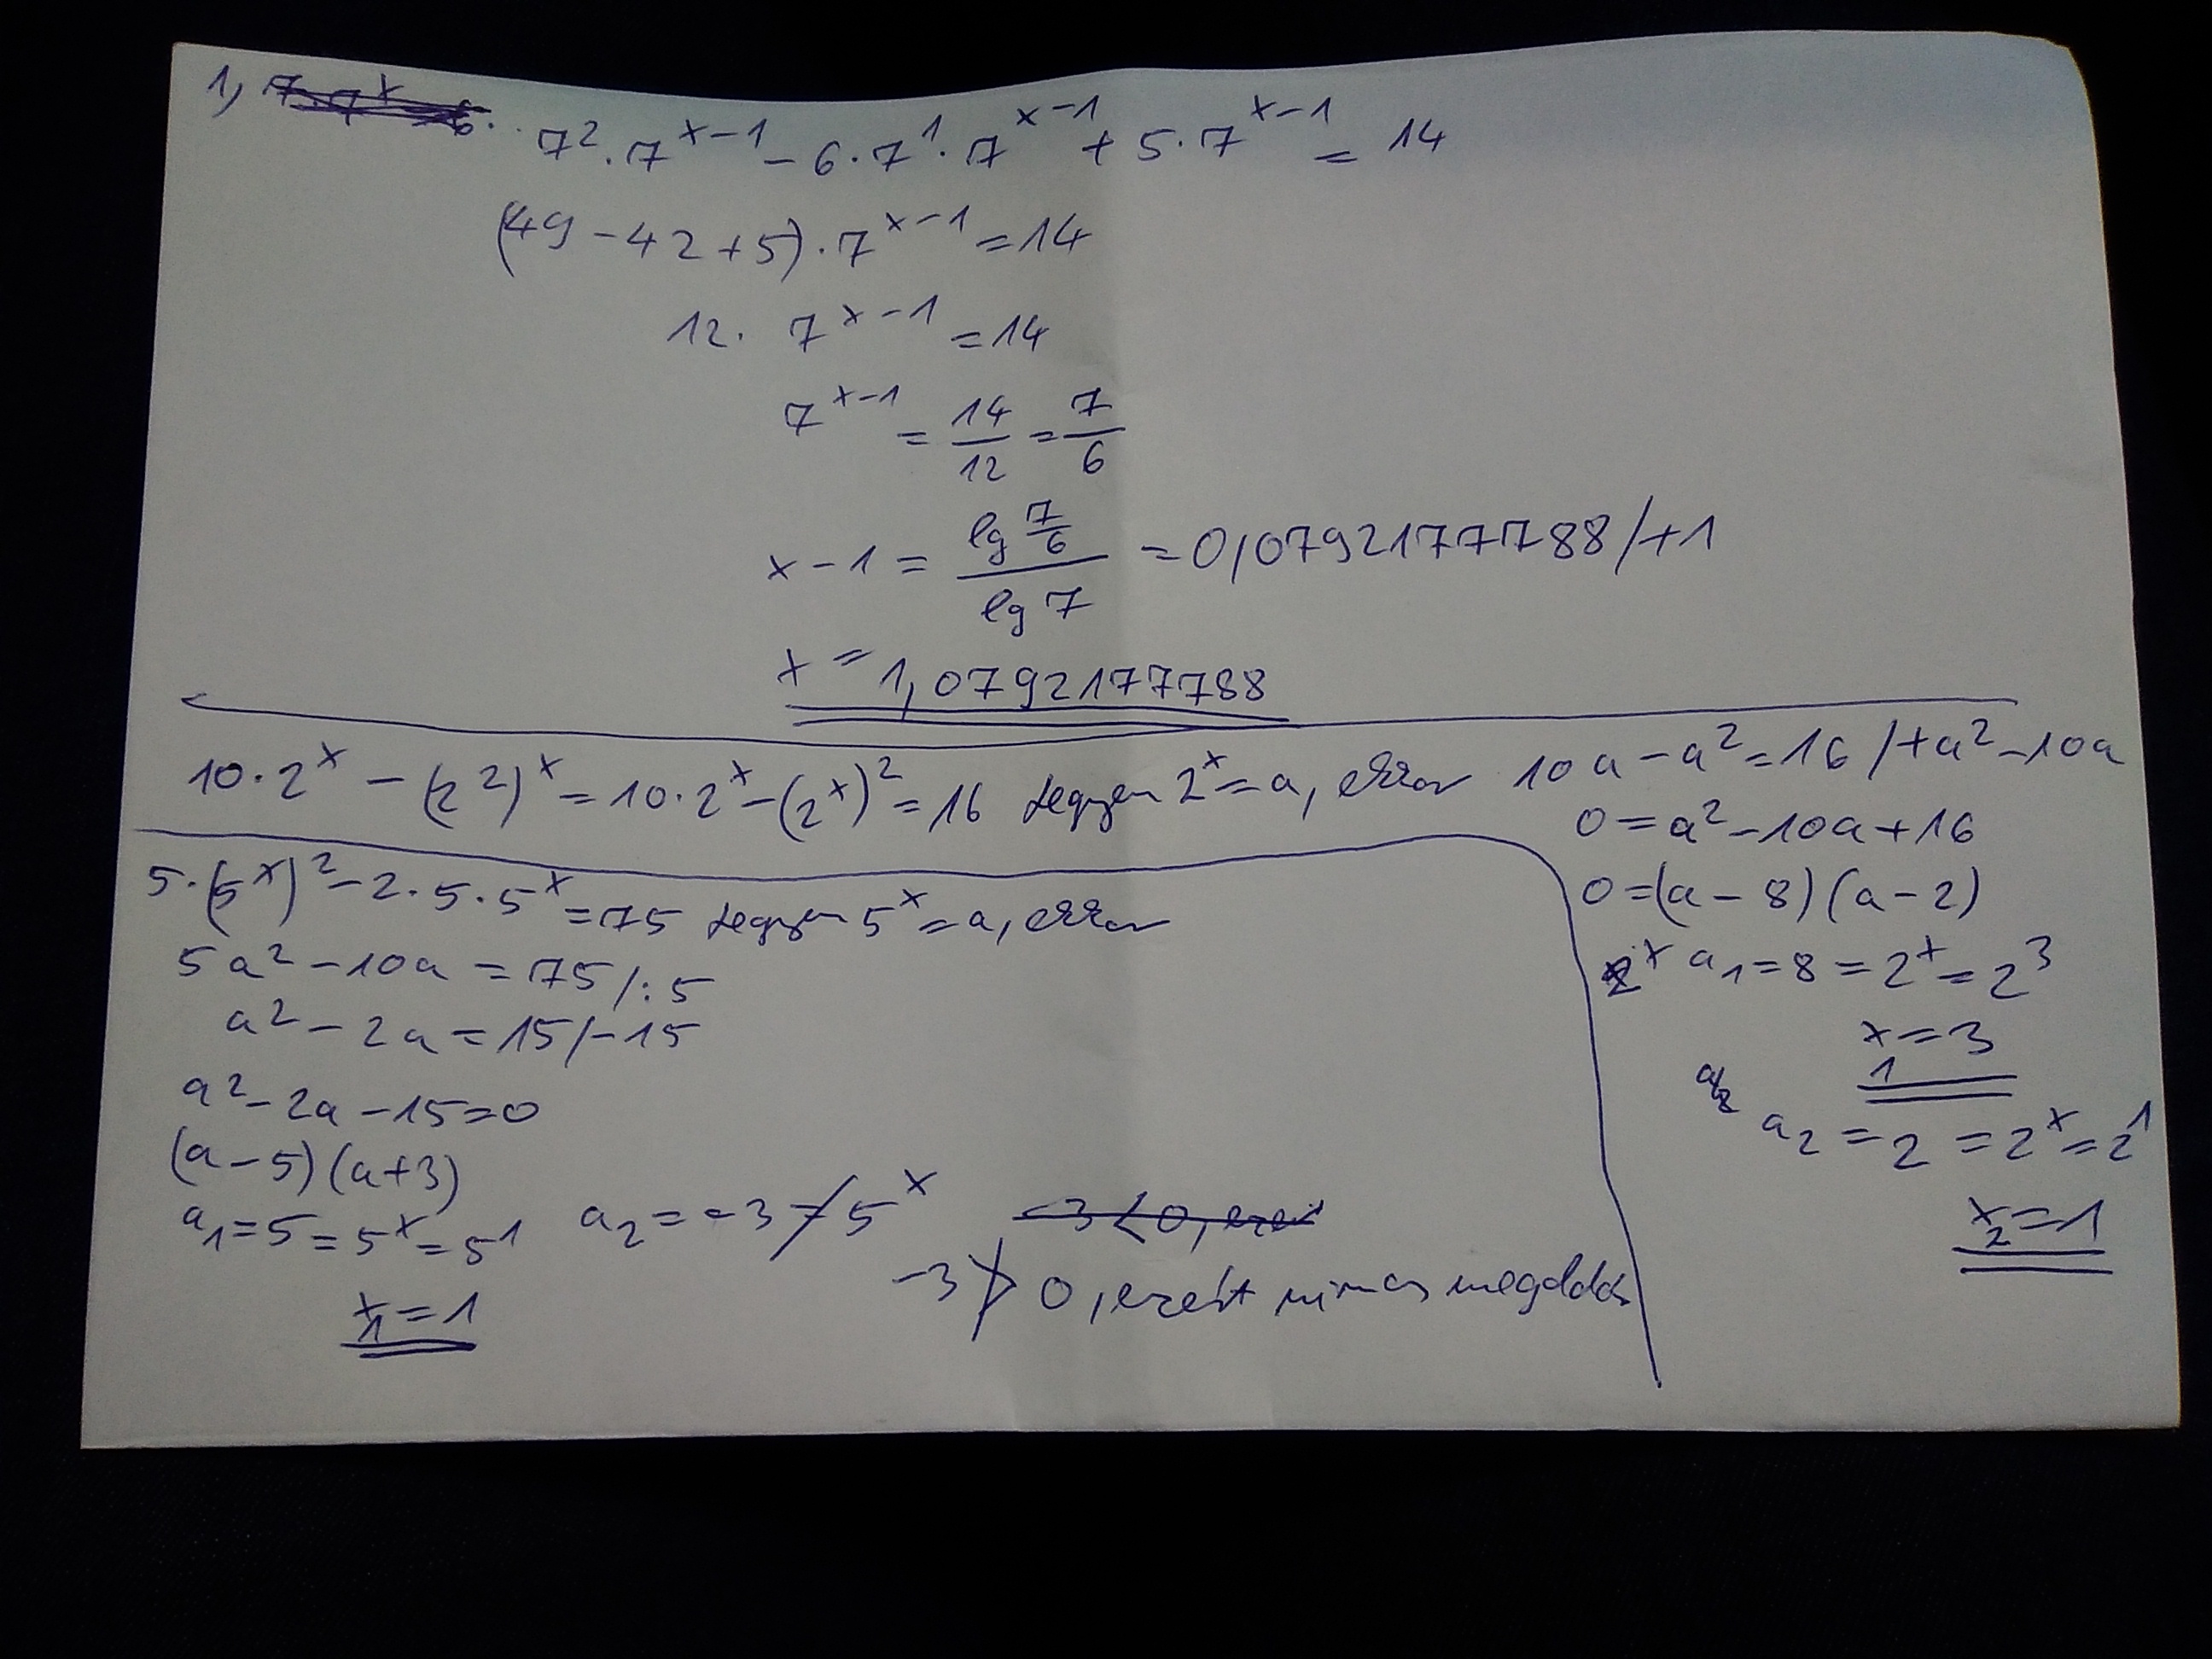 1,
7² · 7^(x-1) - 6 · 7¹ · 7^(x-1) + 5 · 7^(x-1) = 14
(49 - 42 + 5) · 7^(x-1) = 14
12 · 7^(x-1) = 14
7^(x-1) = 14/12 = 7/6
x - 1 = (lg 7/6)/(lg 7) = 0,0792177788 /+1
x = 1,0792177788
10 · 2^x - (2²)^x = 10 · 2^x - (2^x)² = 16 legyen 2^x = a, ekkor 10a - a² = 16 /+a² - 10a
0 = a² - 10a + 16
0 = (a - 8)(a - 2)
a₁ = 8 = 2^x = 2³
x₁ = 3
a₂ = 2 = 2^x = 2¹
x₂ = 1
5 · (5^x)² - 2 · 5 · 5^x = 75 legyen 5^x = a, ekkor
5a² - 10a = 75 /: 5
a² - 2a = 15 /-15
a² - 2a - 15 = 0
(a - 5)(a + 3)
a₁ = 5 = 5^x = 5¹ a₂ = -3 ≠ 5^x -3 < 0, ezér
-3 ≯ 0, ezért nincs megoldás
x₁ = 1